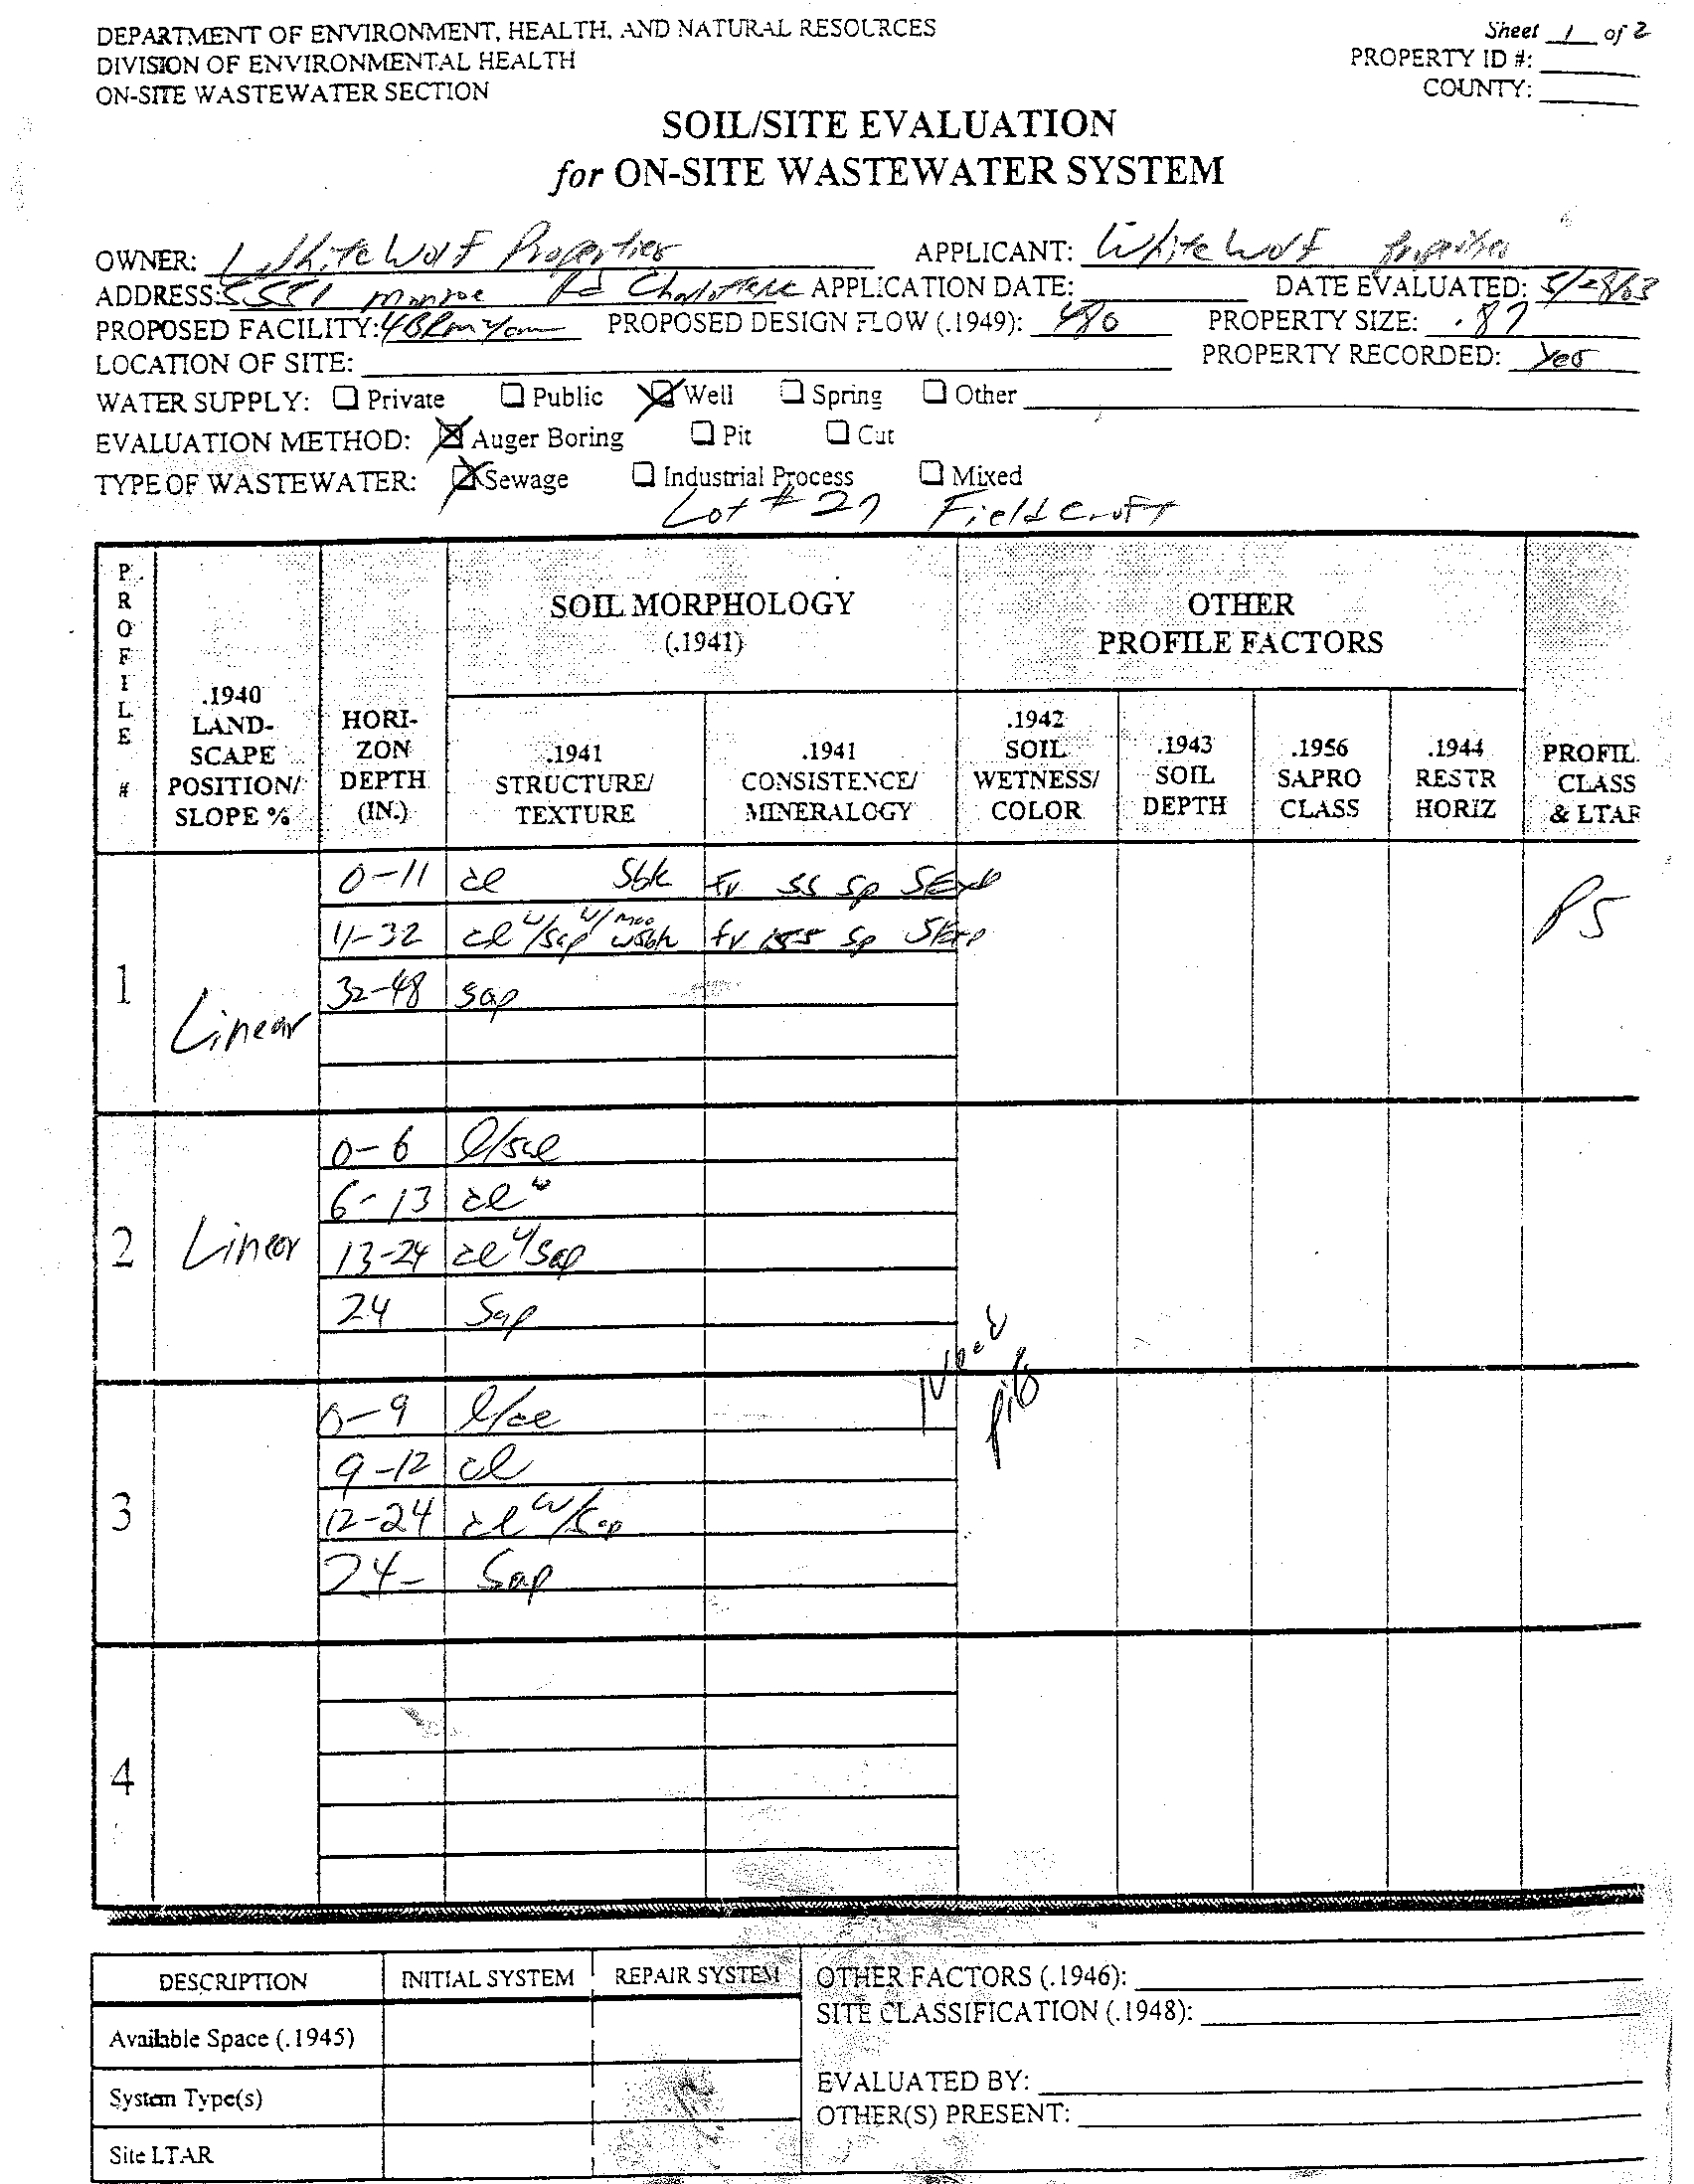 DEPARTMENT OF ENVIRONMENT, HEALTH, AND NATURAL RESOURCES
DIVISION OF ENVIRONMENTAL HEALTH
ON-SITE WASTEWATER SECTION
Sheet 1 of 2
PROPERTY ID #:
COUNTY:
SOIL/SITE EVALUATION
for ON-SITE WASTEWATER SYSTEM
OWNER: White Wolf Properties APPLICANT: White Wolf Properties
ADDRESS: 5551 Monroe Rd Charlotte APPLICATION DATE: DATE EVALUATED: 5/28/03
PROPOSED FACILITY: 4BRm PROPOSED DESIGN FLOW (.1949): 480 PROPERTY SIZE: .87
LOCATION OF SITE: PROPERTY RECORDED: Yes
WATER SUPPLY: Private Public Well Spring Other
EVALUATION METHOD: Auger Boring Pit Cut
TYPE OF WASTEWATER: Sewage Industrial Process Mixed
Lot # 27 Fieldcroft
PROFILE #
.1940 LAND-SCAPE POSITION/ SLOPE %
HORI-ZON DEPTH (IN.)
SOIL MORPHOLOGY (.1941)
.1941 STRUCTURE/ TEXTURE
.1941 CONSISTENCE/ MINERALOGY
OTHER PROFILE FACTORS
.1942 SOIL WETNESS/ COLOR
.1943 SOIL DEPTH
.1956 SAPRO CLASS
.1944 RESTR HORIZ
PROFIL. CLASS & LTAR
1 Linear
0-11 cl Sbk fr ss sp SExp PS
11-32 cl w/sap w/ wsbk fr ss sp SExp
32-48 sap
2 Linear
0-6 l/scl
6-13 cl
13-24 cl w/sap
24 Sap
Need pits
3
0-9 l/cl
9-12 cl
12-24 cl w/sap
24- Sap
4
DESCRIPTION INITIAL SYSTEM REPAIR SYSTEM
Available Space (.1945)
System Type(s)
Site LTAR
OTHER FACTORS (.1946):
SITE CLASSIFICATION (.1948):
EVALUATED BY:
OTHER(S) PRESENT: